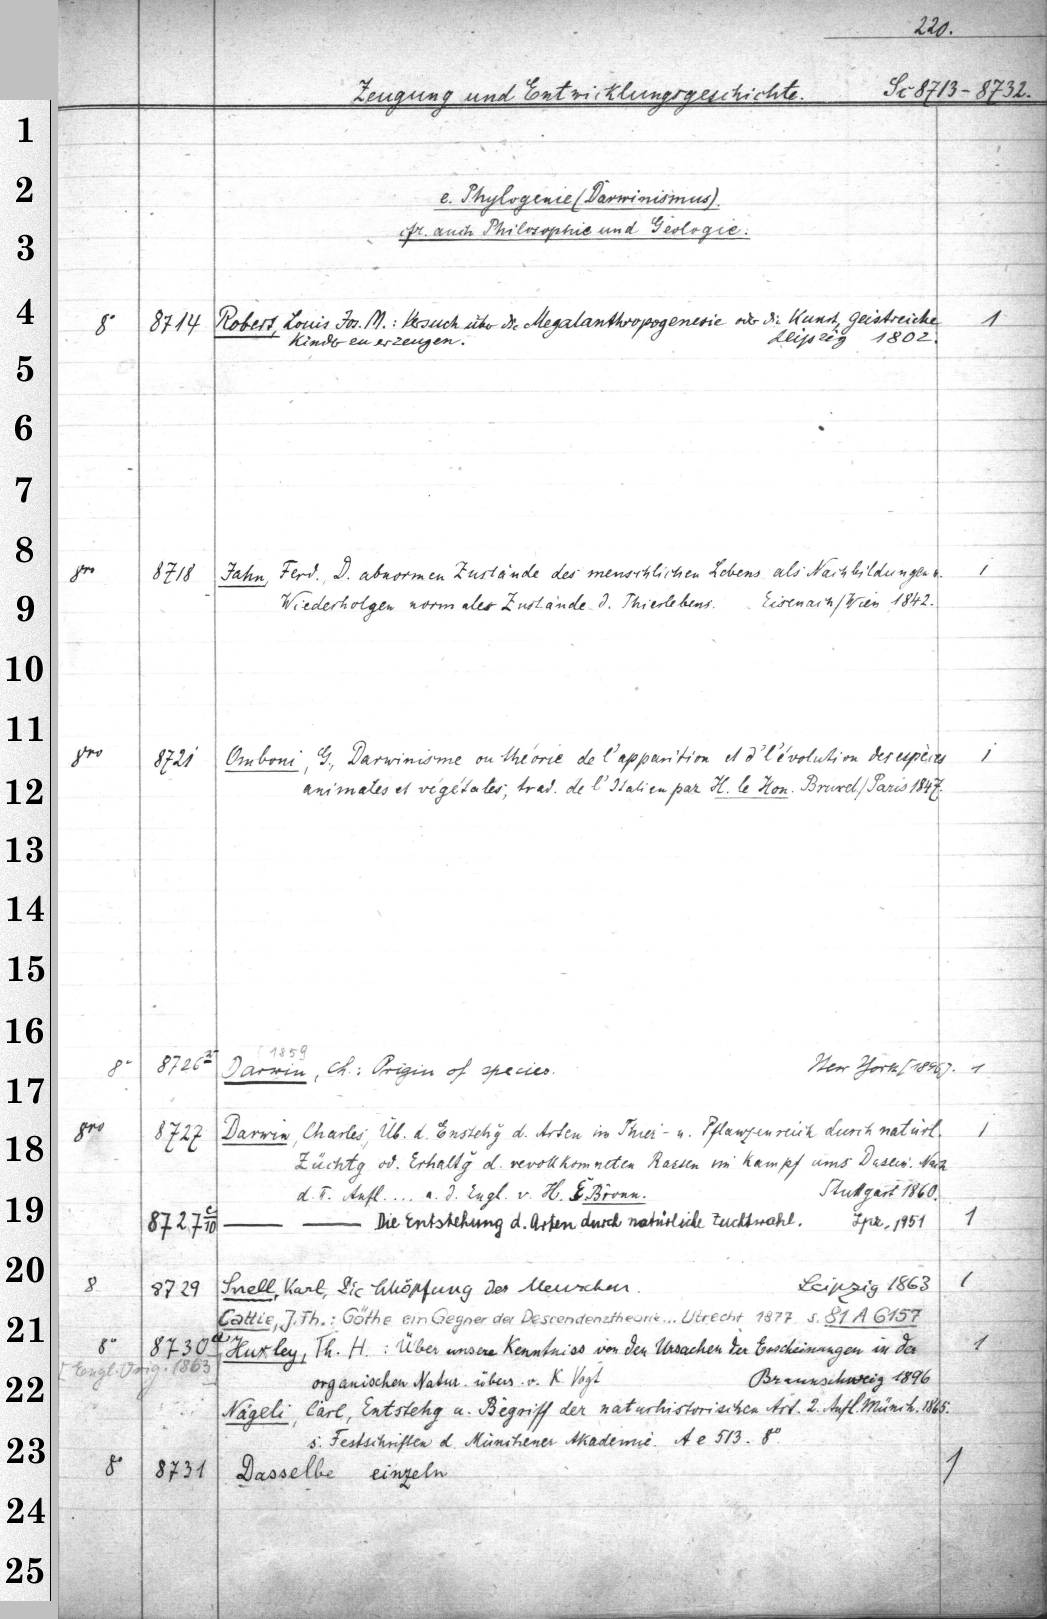 220.
Zeugung und Entwicklungsgeschichte. Sc 8713 - 8732.
1
2
e. Phylogenie (Darwinismus).
cfr. auch Philosophie und Geologie.
3
4
8° 8714 Robert, Louis Jos. M.: Versuch über die Megalanthropogenesie oder die Kunst, geistreiche 1
Kinder zu erzeugen. Leipzig 1802.
5
6
7
8
gro 8718 Jahn, Ferd., D. abnormen Zustände des menschlichen Lebens als Nachbildungen u. 1
9
Wiederholgen normaler Zustände d. Thierlebens. Eisenach/Wien 1842.
10
11
gro 8721 Omboni, G., Darwinisme ou théorie de l'apparition et d'l'évolution des espèces 1
12
animales et végétales, trad. de l'Italien par H. le Hon. Bruxel/Paris 1847.
13
14
15
16
[1859
8° 8726 Darwin, Ch.: Origin of species. New York [1896]. 1
17
gro 8727 Darwin, Charles, Üb. d. Enstehg d. Arten im Thier- u. Pflanzenreich durch natürl. 1
18
Züchtg od. Erhaltg d. vervollkommneten Rassen im Kampf ums Dasein. Nach
d. II. Aufl. ... a. d. Engl. v. H. G Bronn. Stuttgart 1860.
19
8727 c/10 —— —— Die Entstehung d. Arten durch natürliche Zuchtwahl. Lpz., 1951 1
20
8 8729 Snell, Karl, Die Schöpfung des Menschen. Leipzig 1863 1
Cattie, J. Th.: Göthe ein Gegner der Descendenztheorie... Utrecht 1877 s. 81 A 6157
21
8° 8730 a Huxley, Th. H.: Über unsere Kenntniss von den Ursachen der Erscheinungen in der 1
[Engl. Orig. 1863]
22
organischen Natur. übers. v. K. Vogt Braunschweig 1896
Nägeli, Carl, Entstehg u. Begriff der naturhistorischen Art. 2. Aufl. Münch. 1865.
23
s. Festschriften d. Münchener Akademie. A e 513. 8°
8° 8731 Dasselbe einzeln 1
24
25